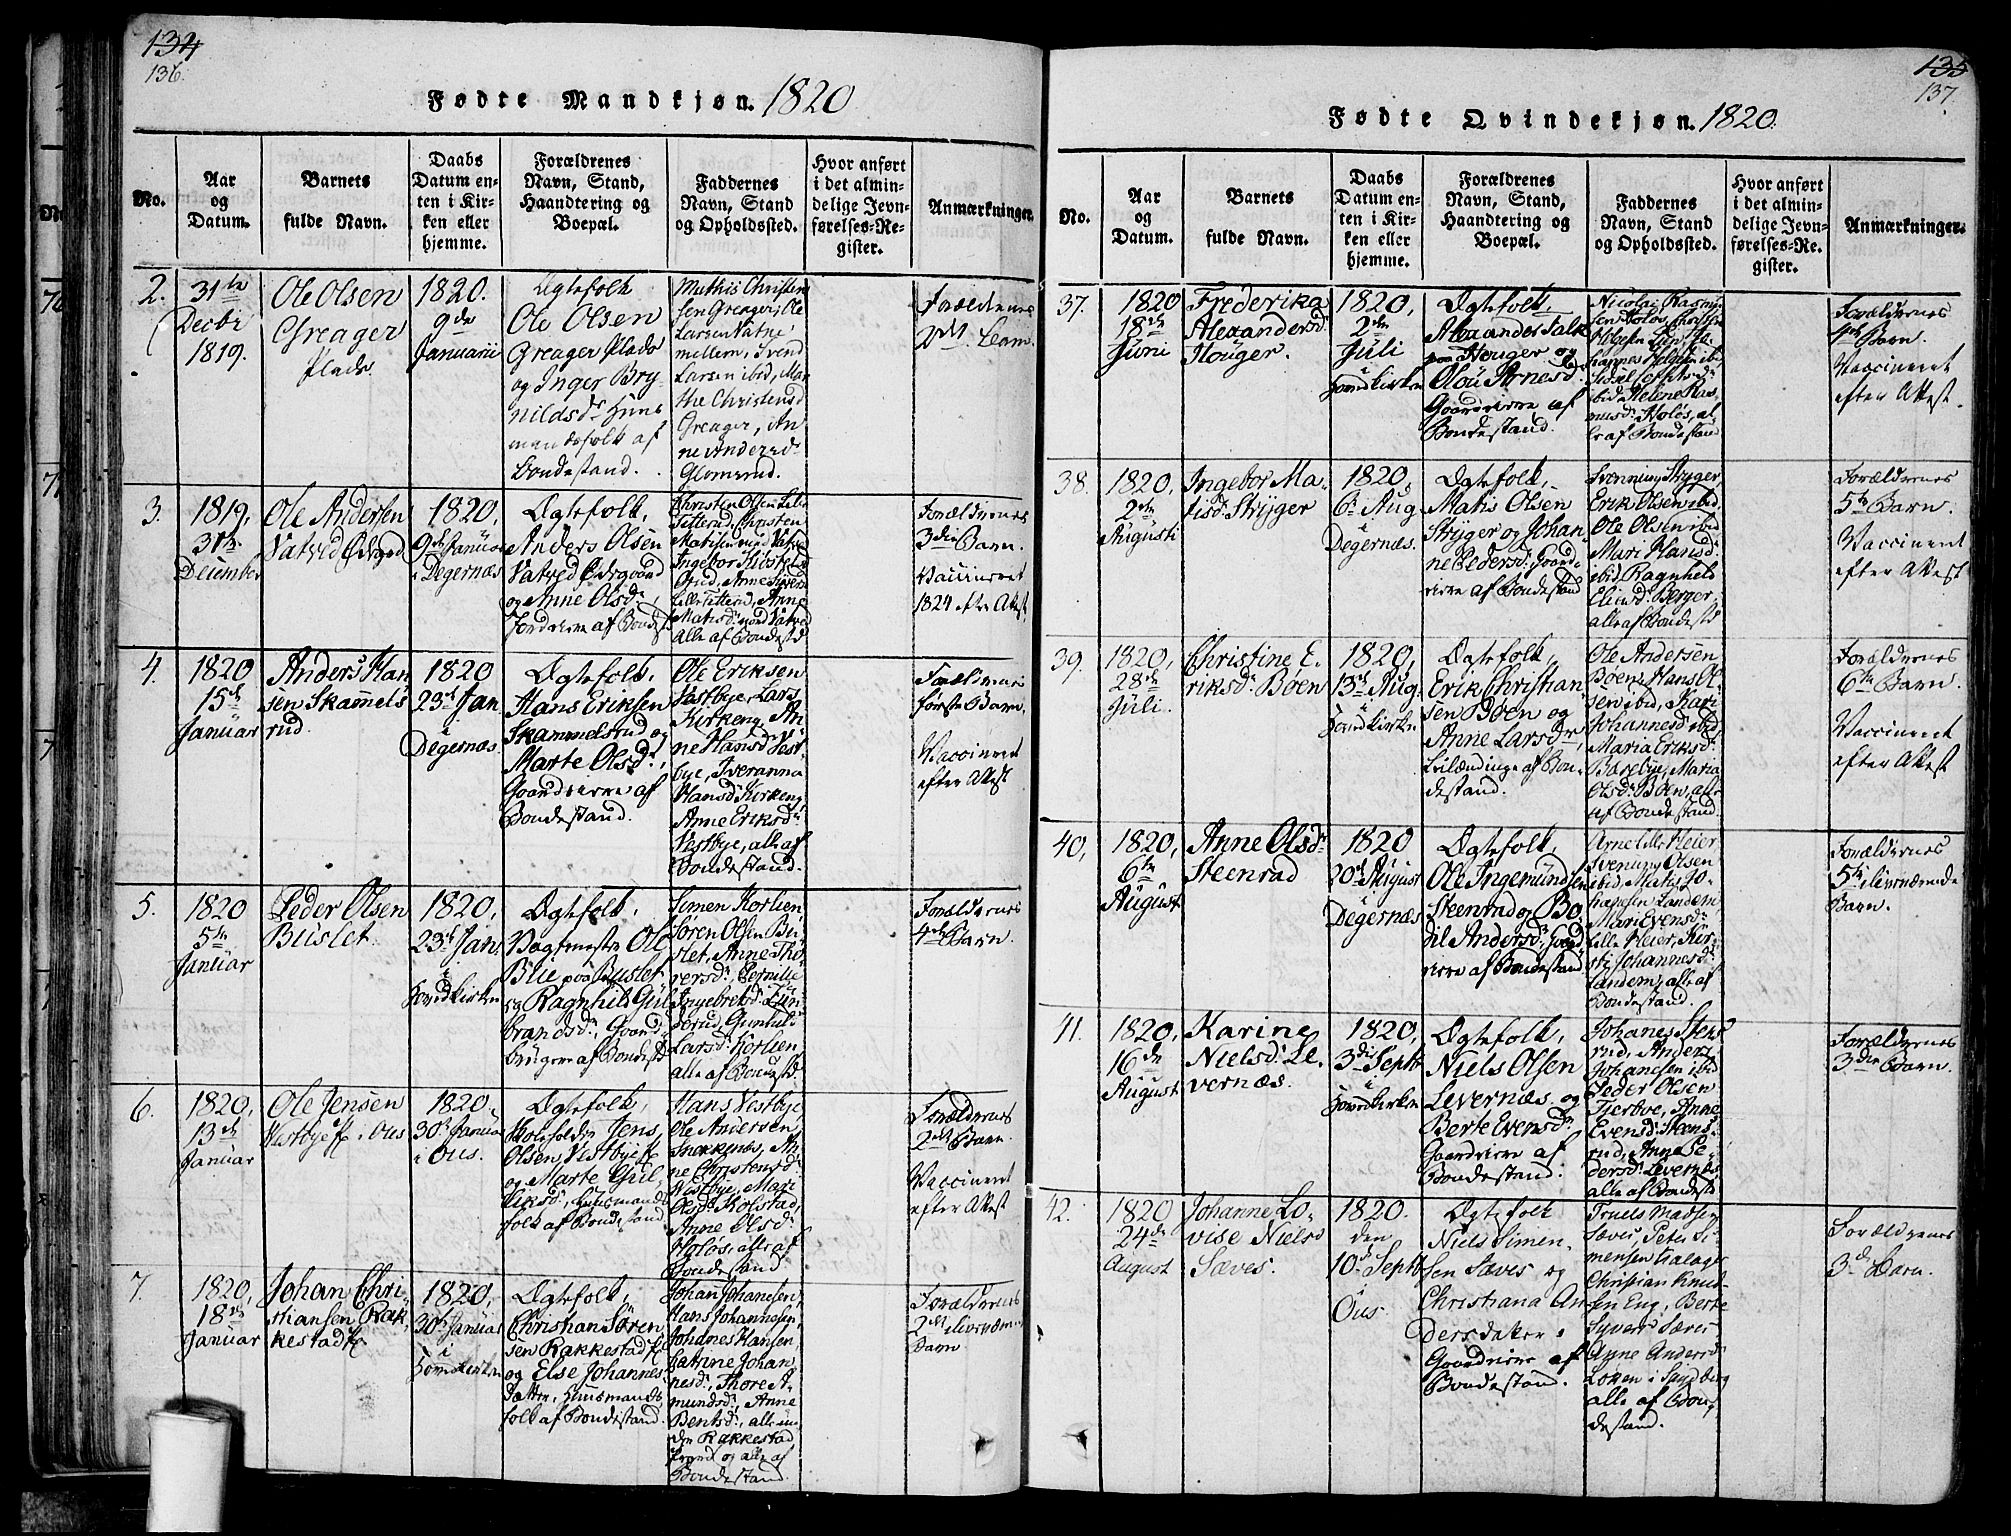 134
136.
Fødte Mandkjøn. 1820
No.
Aar
og
Datum.
Barnets
fulde Navn.
Daabs
Datum en-
ten i Kir-
ken eller
hjemme.
Forældrenes
Navn, Stand,
Haandtering og
Boepæl.
Faddernes
Navn, Stand
og Opholdssted.
Hvor anført
i det almin-
delige Jevn-
førelses-Re-
gister.
Anmærkninger.
2.
31te
Decbr
1819.
Ole Olsen
Greager
Plads.
1820.
9de
Januarii
Ægtefolk
Ole Olsen
Greager Plads
og Inger Bry-
nildsdr Huus
mandsfolk af
bondestand.
Mathis Christen
sen Greager, Ole
Larsen Vatne
mellem, Svend
Larsen ibid, Mar
the Christensd
Greager, An
ne Andersd
Glomsrud.
Forældrenes
2det
3.
1819,
31te
December
Ole Andersen
Vatved Ødegrd
1820,
9de Januar
i Degernæs
Ægtefolk,
Anders Olsen
Vatved Ødegaard
og Anne Olsdr,
af Bondest
Christen Olsen Lille
Tetterud, Christen
Matisen nord Vatved
Ingebor
Anne
Lille Tetterud, Anne
Matisdr nord Vatved
alle af Bondestd
Forældrenes
3die Barn.
Vaccineret
1824 efter Attest.
4.
1820
15de
Januar
Anders Han
sen Skammels
rud.
1820
23de Jan
i
Degernæs.
Ægtefolk,
Hans Eriksen
Skammelsrud og
Marte Olsdr,
Gaardeiere af
Bondestand.
Ole Eriksen
Vestbye, Lars
Kirkeng, An
ne Hansdr Vest
bye, Iveranna
Hansdr Kirkeng,
Anne Eriksdr
Vestbye, alle af
Bondestand.
Forældrenes
første Barn.
Vaccineret
efter Attest
5.
1820
5te
Januar
Peder Olsen
Buslet.
1820,
23de Jan,
i
Hovedkirken
Ægtefolk,
Vagtmester Ole
Blie paa Buslet
og Ragnhild Gul
brandsdr, Gaard-
brugere af Bondestd
Simen Korlien
Søren Olsen Bu
slet, Anne Tho
versdr, Pernille
Ingebretsdr
Gunhild
Larsdr Korlien
alle af Bondestd.
Forældrenes
4de Barn.
6.
1820,
13de
Januar
Ole Jensen
Vestbye i Ous
1820,
30te Januar
i Ous.
Ægtefolk,
Jens
Olsen Vestbye
og Marte Gul-
liksdr, Huusmands
folk af Bondestand
Hans Vestbye
Ole Andersen
Snekkenæs, An
ne Christensd
Vestbye, Mari
Olsdr Kolstad,
Anne Olsdr
Holøs, alle af
Bondestand
Forældrenes
2det Barn.
Vaccineret
efter Attest
7.
1820,
18de
Januar
Johan Chri-
stiansen Rak
kestad
1820,
30te Januar
i
Hovedkirken
Ægtefolk,
Christian Sören
sen Rakkestad
og Else Johannes
datter, Huusmands
folk af Bondestand.
Johan Johannesen,
Hans Johannesen,
Johannes Hansen,
Catrine Johan
nesdr, Thore A-
mundsdr, Anne
Bentsdr, alle un
der Rakkestad
og alle af
Bondestand.
Forældrenes
2det
Barn
135
137.
Fødte Qvindekjøn. 1820.
No.
Aar
og
Datum.
Barnets
fulde Navn.
Daabs
Datum en-
ten i Kir-
ken eller
hjemme.
Forældrenes
Navn, Stand,
Haandtering og
Boepæl.
Faddernes
Navn, Stand
og Opholdssted.
Hvor anført
i det almin-
delige Jevn-
førelses-Re-
gister.
Anmærkninger.
37.
1820
18de
Juni
Frederika
Alexandersdr
Houger.
1820,
2den
Juli
i
Hovedkirken
Ægtefolk
Alexander Falk
paa Houger og
Olou Arnesdr
Gaardeiere af
Bondestand.
Nicolai Rasmu
sen Holøs, Christen
Helgesen Lun, Jo
hannes Helgesen ibid
Sidsel
ibid, Helene Ras
musdr Holøs, al
le af Bondestand
Forældrenes
4de Barn.
Vaccineret
efter Attest.
38.
1820,
2den
Augusti
Ingebor Ma-
tisdr Stryger
1820,
6te Aug
i
Degernæs.
Ægtefolk,
Matis Olsen
Stryger og Johan
ne Pedersdr, Gaard-
eiere af Bondestand
Svenning Stryger,
Erik Olsen ibid,
Ole Olsen ibid
Mari Hansdr
ibid, Ragnhild
Elinsdr Berger,
alle af Bondestd
Forældrenes
5te Barn.
Vaccineret
efter Attest
39.
1820,
28de
Juli.
Christine E-
riksdr Bøen
1820,
13de Aug.
i
Hovedkirken
Ægtefolk,
Erik Christian
sen Bøen og
Anne Larsdr,
af Bon-
destand.
Ole Andersen
Bøen, Hans Ol
sen ibid, Kari
Johannesdr ibid
Maria Eriksdr
Maria
Olsdr Bøen, alle
af Bondestand.
Forældrenes
6te Barn.
Vaccineret
efter Attest
40,
1820,
6te
August
Anne Olsdr
Steenrad
1820
20de August
i
Degernæs
Ægtefolk,
Ole Ingemundsen
Steenrad og Bo
dil Andersdr, Gaard
eiere af Bondestand
Arne Lille Heier,
Svenung Olsen
ibid, Matis Jo-
hansen Landem,
Mari Evensdr
Lille Heier, Kir-
sti Johannesdr
Landem, alle af
Bondestand.
Forældrenes
5te levendende
Barn.
41.
1820,
16de
August
Karine
Nielsdr Le
vernæs.
1820,
3die Septbr
i
Hovedkirken
Ægtefolk,
Niels Olsen
Levernæs og
Berte Evensdr,
Gaardeiere af
Bondestand.
Johanes Stens
rud, Anders
Johanesen ibid
Peder Olsen
Tjerboe, Anne
Evensdr Steens-
rud, Anne Pe-
dersdr Levernæs
alle af Bondestd
Forældrenes
3die Barn.
42.
1820
24de
August
Johanne Lo-
vise Nielsd
Sæves.
1820.
den
10de Septbr
i
Ous.
Ægtefolk
Niels Simen-
sen Sæves og
Christiana An
dersdatter,
Gaardeiere af
Bondestand.
Truels Madsen
Sæves, Peter Si
mensen
Christian Knud
sen Eng, Berte
Syvers Sæves
Anne Andersd
Løken i Spydberg
alle af Bon-
destand.
Forældrenes
3de Barn.